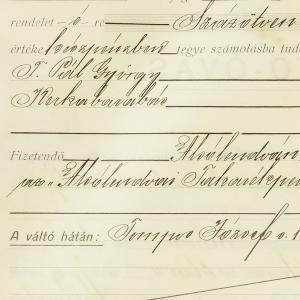 rendelet-é-re Százötven
értéke készpénzben tegye számolásba tud
T. Pál György
Kukabarabás
Fizetendő Alsólendván
az „Alsólendvai Takarékpén
A váltó hátán: József s. k